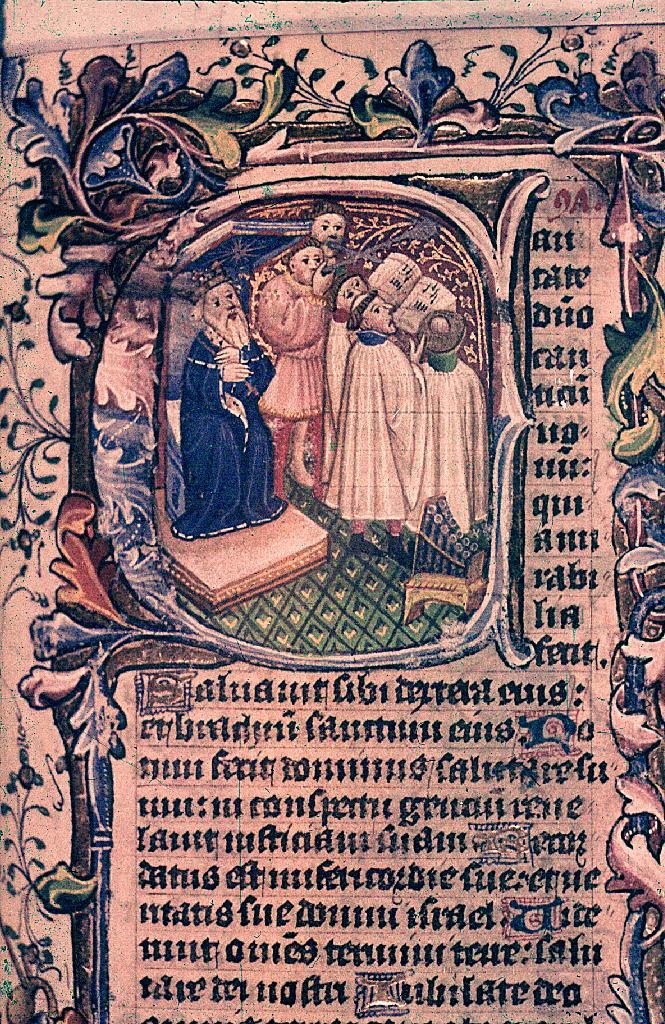 an
tate
dño
can
ticū
no
uū:
qui
a mi
rabi
lia
fecit.
Saluauit sibi dextera eius:
et brachiū sanctum eius No
tum fecit dominus salutare su
um: in conspectu gentiū reue
lauit iusticiam suam Recor
datus est misericordie sue: et ue
ritatis sue domui israel Uide
runt omēs termini terre: salu
tare dei nostri Iubilate deo